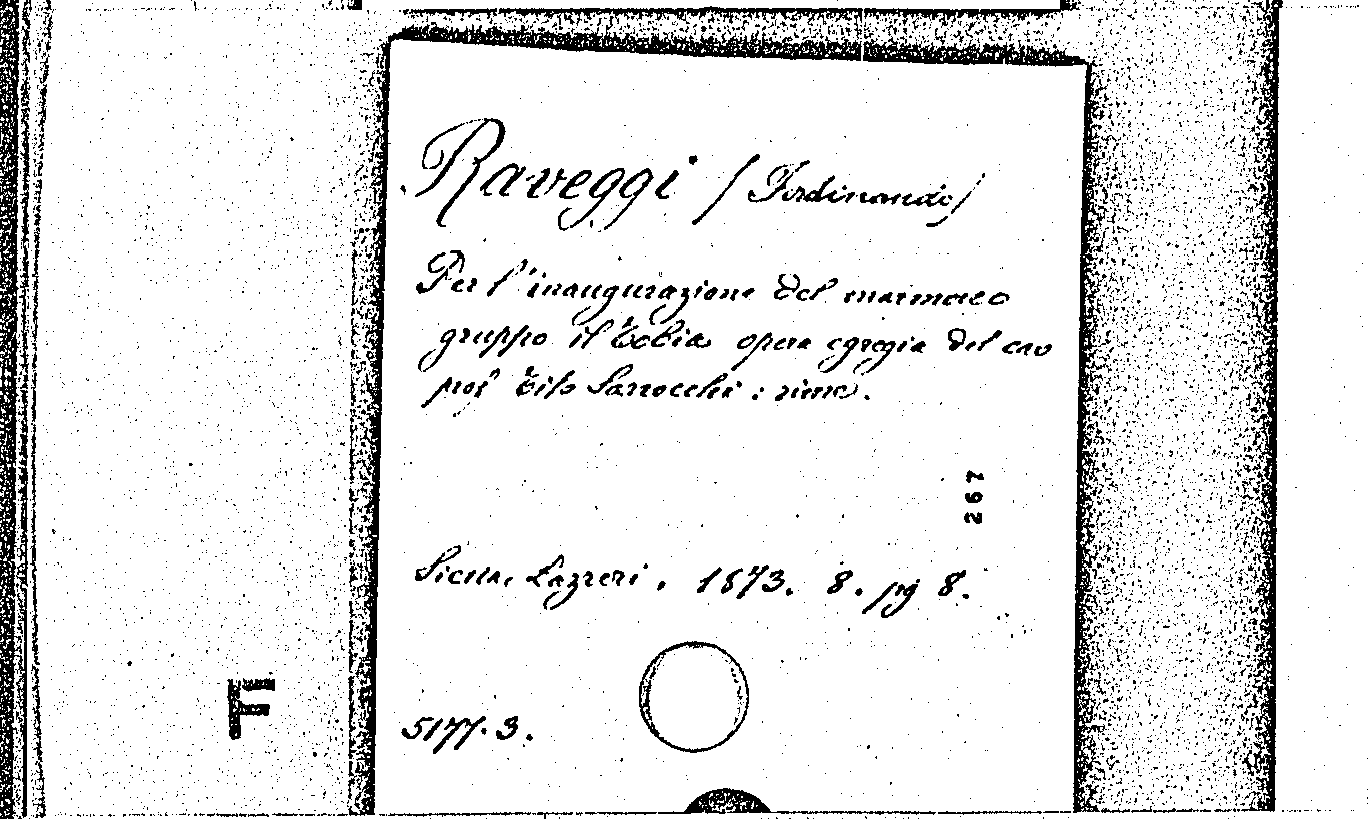 Raveggi (Ferdinando)
Per l'inaugurazione del marmoreo
gruppo il Tobia opera egregia del cav
prof Tito Sarrocchi : rime.
267
Siena, Lazzeri. 1873. 8. pg 8.
F
5177.3.